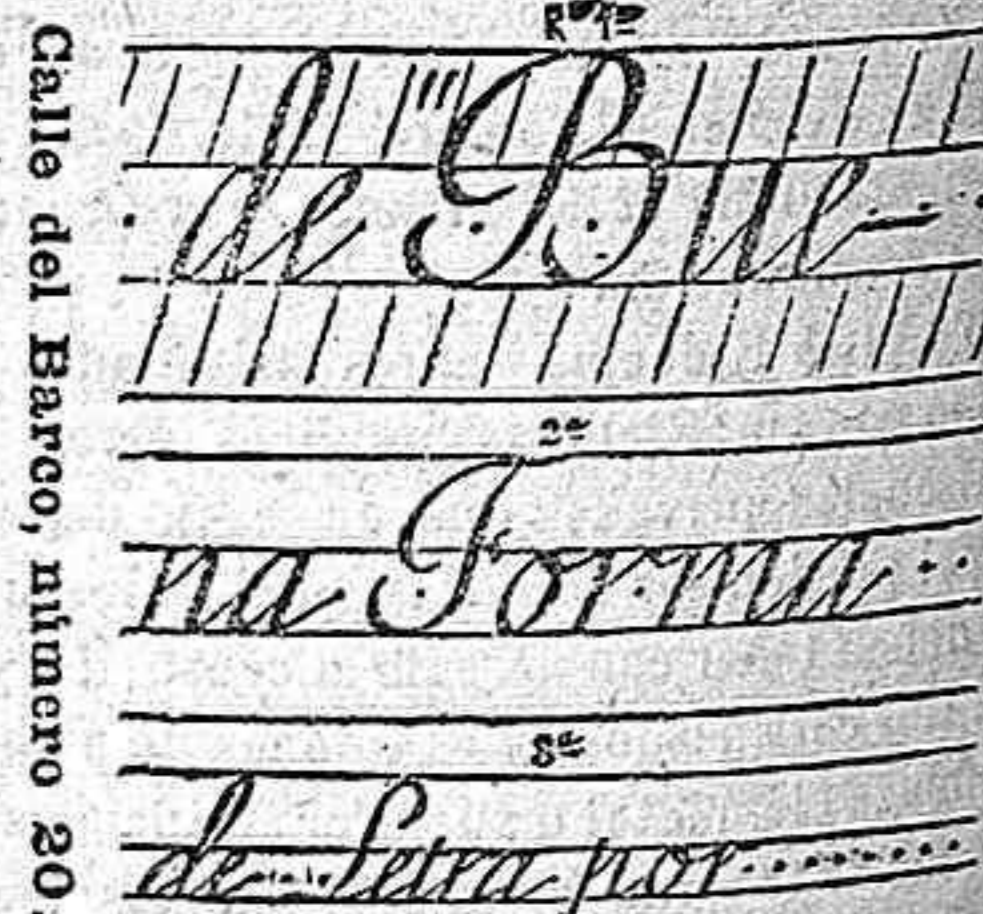 Calle del Barco, número 20.
de "Bue
2ª
na Forma
de Letra por